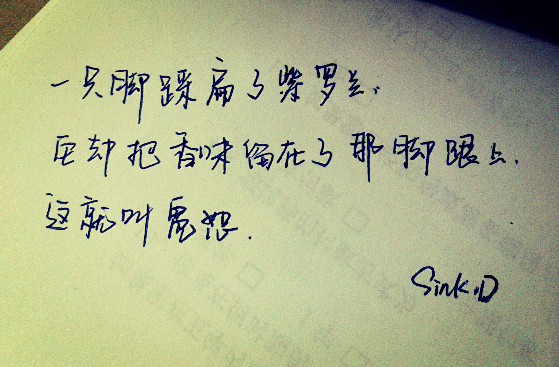 一只脚踩扁了紫罗兰.
它却把香味留在了那脚跟上.
这就叫宽恕.
Sink.D